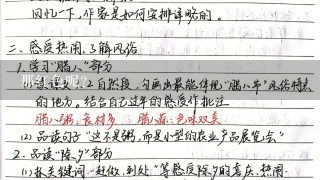 回忆一下,作家是如何安排详略的。
二、感受热闹,了解风俗
1.学习“腊八”部分
2自然段,勾画出最能体现“腊八节”风俗特点
的地方。结合自己过年的感受作批注
腊八粥:食材多 腊八蒜:色味双美
(2) 品读句子“这不是粥,而是小型的农业产品展览会”
2.品读“除夕”部分
(1) 抓关键词“赶做、到处”等感受除夕的喜庆、热闹
那红色呢?